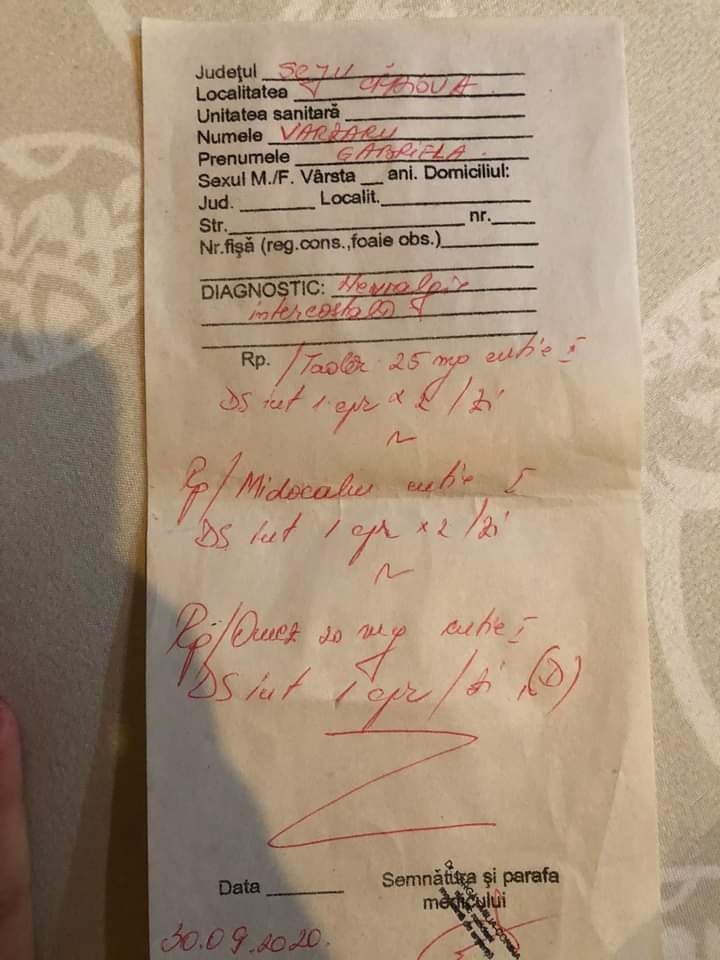 Judeţul SCJU
Localitatea CRAIOVA
Unitatea sanitară
Numele VARZARU
Prenumele GABRIELA
Sexul M./F. Vârsta ___ ani. Domiciliul:
Jud. ______ Localit.
Str. nr.
Nr.fişă (reg.cons.,foaie obs.)
DIAGNOSTIC: Nevralgie
intercostală
Rp. / 25 mg cutie I
DS int 1 cpr x 2 / zi
Rp/ Midocalm cutie I
DS int 1 cpr x 2 / zi
Rp/ Omez 20 mg cutie I
DS int 1 cpr / zi (D)
Data Semnătura şi parafa
medicului
30.09.2020.